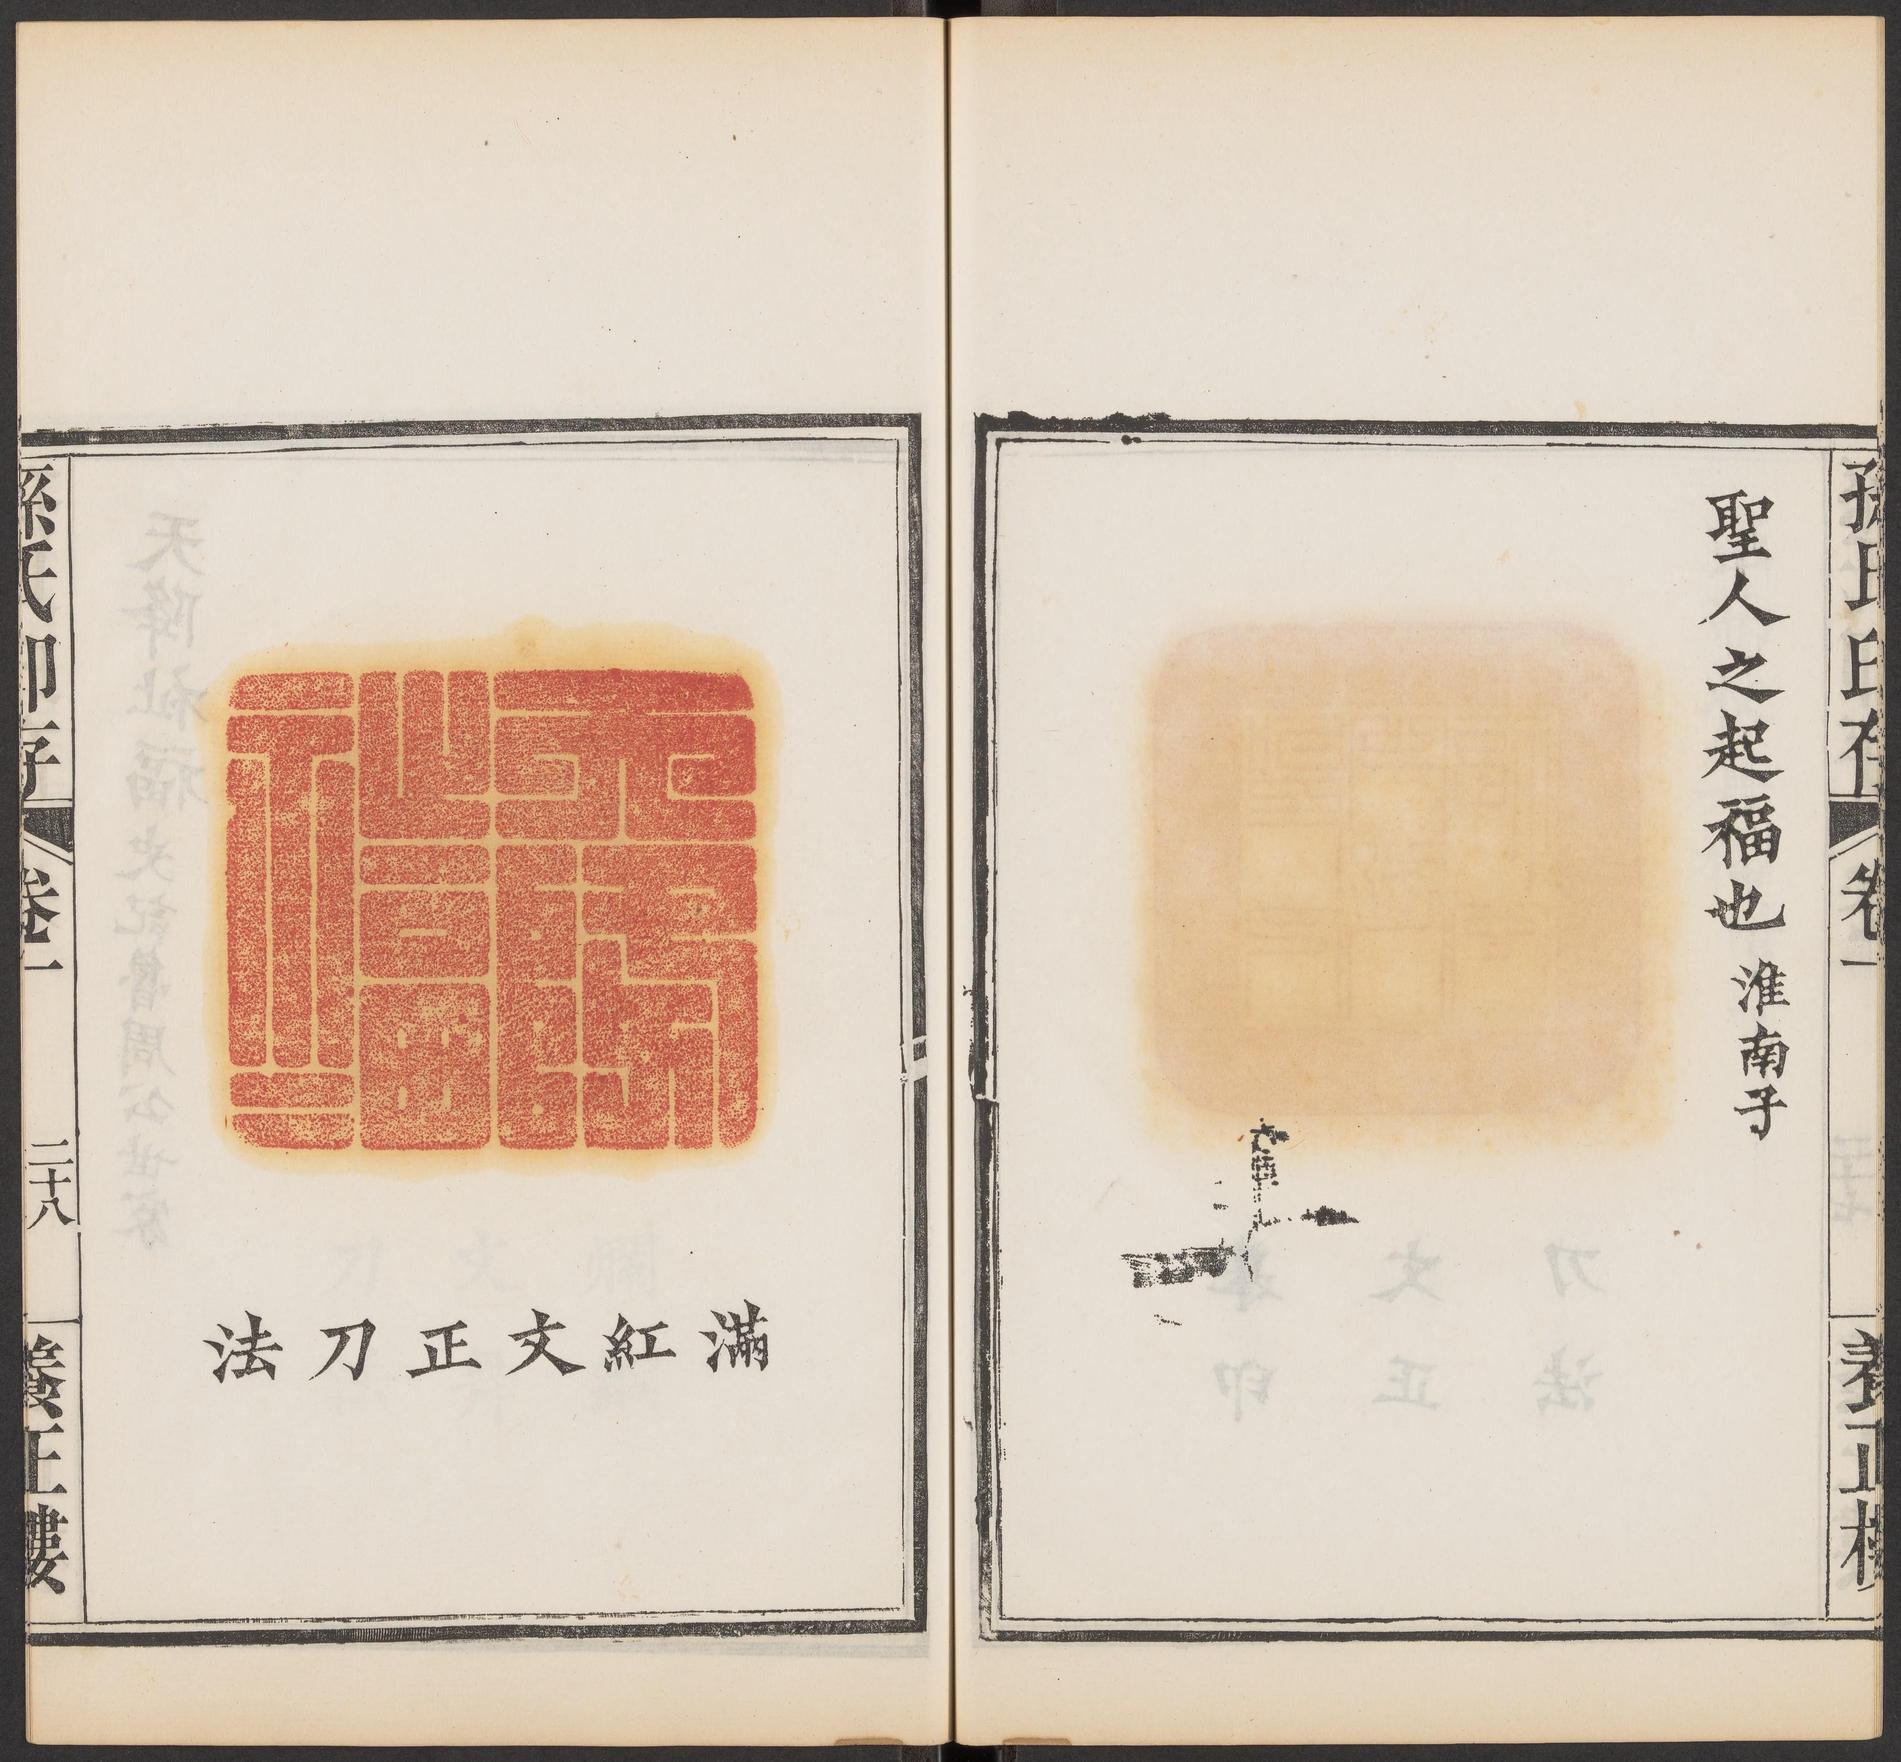 孫氏印存 卷一 養正樓
聖人之起福也 淮南子
天降祉福
滿紅文正刀法
孫氏印存 卷一 二十八 養正樓